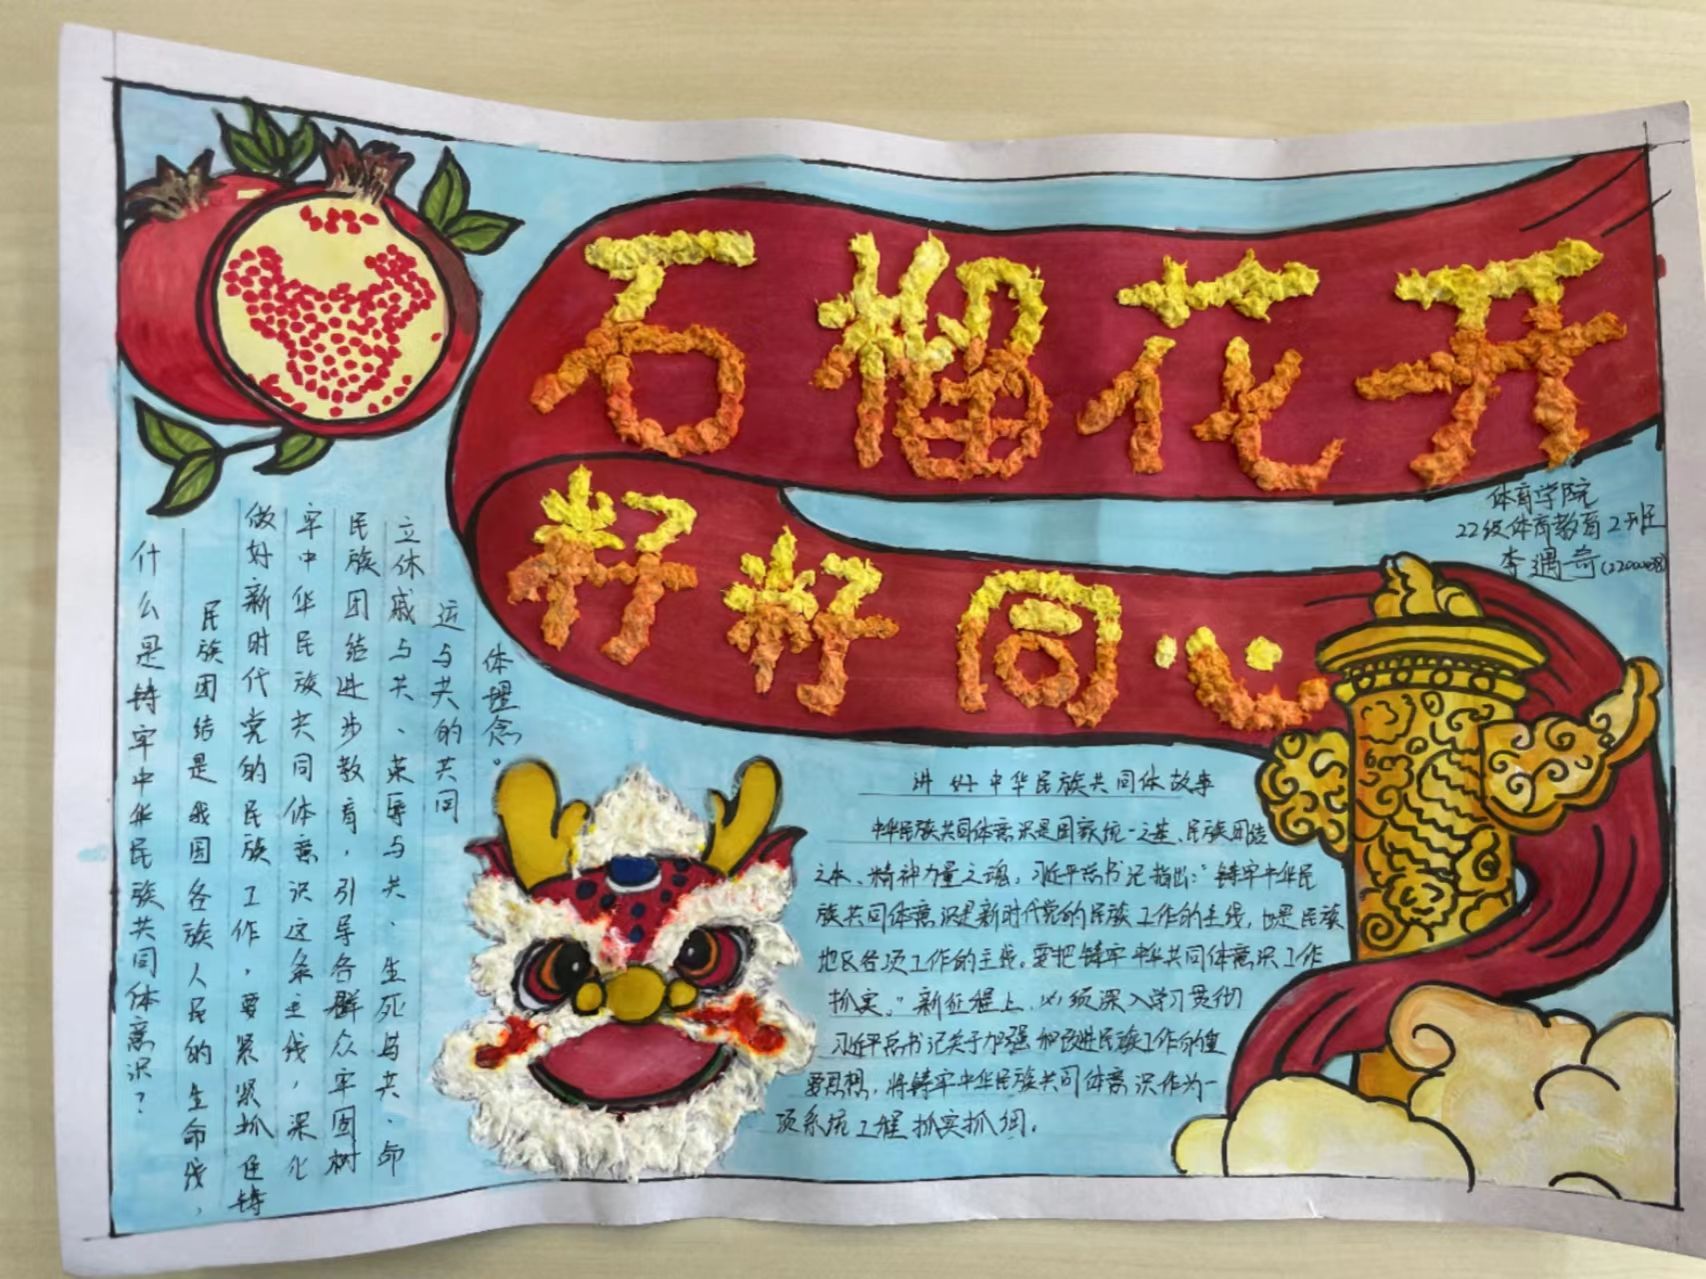 石榴花开
籽籽同心
体育学院
22级体育教育2班
李遇奇
什么是铸牢中华民族共同体意识?
民族团结是我国各族人民的生命线,
做好新时代党的民族工作,要紧紧抓住铸
牢中华民族共同体意识这条主线,深化
民族团结进步教育,引导各群众牢固树
立休戚与共、荣辱与共、生死与共、命
运与共的共同
体理念。
讲好中华民族共同体故事
中华民族共同体意识是国家统一之基、民族团结
之本、精神力量之魂,习近平总书记指出:“铸牢中华民
族共同体意识是新时代党的民族工作的主线,也是民族
地区各项工作的主线。要把铸牢中华共同体意识工作
抓实。”新征程上,必须深入学习贯彻
习近平总书记关于加强和改进民族工作的重
要思想,将铸牢中华民族共同体意识作为一
项系统工程抓实抓细。